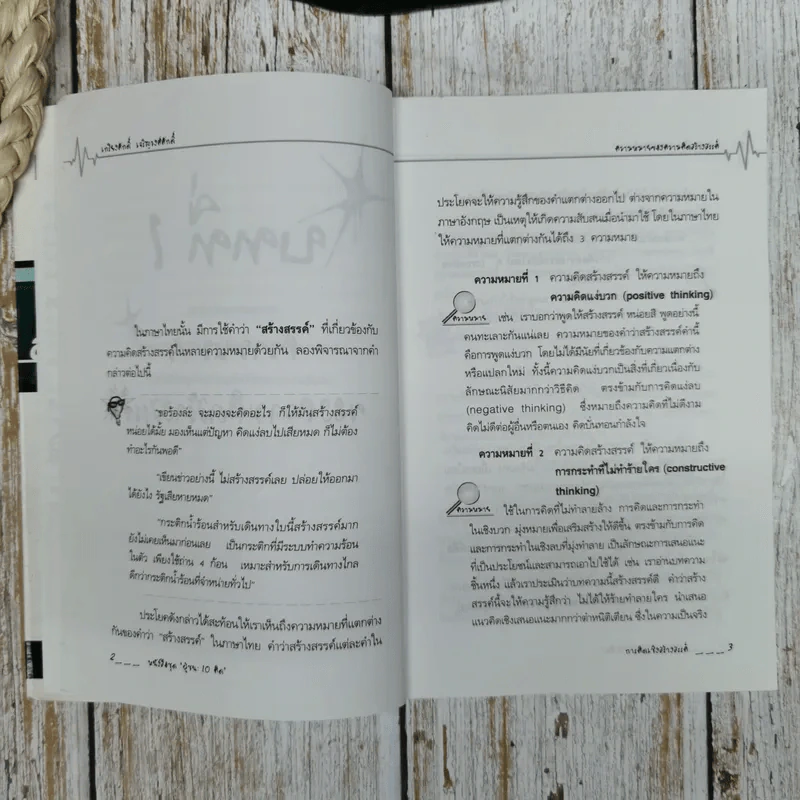 เกรียงศักดิ์ เจริญวงศ์ศักดิ์
บทที่ 1
ในภาษาไทยนั้น มีการใช้คำว่า “สร้างสรรค์” ที่เกี่ยวข้องกับ
ความคิดสร้างสรรค์ในหลายความหมายด้วยกัน ลองพิจารณาจากคำ
กล่าวต่อไปนี้
“ขอร้องล่ะ จะมองจะคิดอะไร ก็ให้มันสร้างสรรค์
หน่อยได้มั้ย มองเห็นแต่ปัญหา คิดแง่ลบไปเสียหมด ก็ไม่ต้อง
ทำอะไรกันพอดี”
“เขียนข่าวอย่างนี้ ไม่สร้างสรรค์เลย ปล่อยให้ออกมา
ได้ยังไง รัฐเสียหายหมด”
“กระติกน้ำร้อนสำหรับเดินทางใบนี้สร้างสรรค์มาก
ยังไม่เคยเห็นมาก่อนเลย เป็นกระติกที่มีระบบทำความร้อน
ในตัว เพียงใช้ถ่าน 4 ก้อน เหมาะสำหรับการเดินทางไกล
ดีกว่ากระติกน้ำร้อนที่จำหน่ายทั่วไป”
ประโยคดังกล่าวได้สะท้อนให้เราเห็นถึงความหมายที่แตกต่าง
กันของคำว่า “สร้างสรรค์” ในภาษาไทย คำว่าสร้างสรรค์แต่ละคำใน
2___ หนังสือชุด “ผู้ชนะ 10 คิด”
ความหมายของความคิดสร้างสรรค์
ประโยคจะให้ความรู้สึกของคำแตกต่างออกไป ต่างจากความหมายใน
ภาษาอังกฤษ เป็นเหตุให้เกิดความสับสนเมื่อนำมาใช้ โดยในภาษาไทย
ให้ความหมายที่แตกต่างกันได้ถึง 3 ความหมาย
ความหมายที่ 1 ความคิดสร้างสรรค์ ให้ความหมายถึง
ความคิดแง่บวก (positive thinking)
ความหมาย เช่น เราบอกว่าพูดให้สร้างสรรค์ หน่อยสิ พูดอย่างนี้
คนทะเลาะกันแน่เลย ความหมายของคำว่าสร้างสรรค์คำนี้
คือการพูดแง่บวก โดยไม่ได้มีนัยที่เกี่ยวข้องกับความแตกต่าง
หรือแปลกใหม่ ทั้งนี้ความคิดแง่บวกเป็นสิ่งที่เกี่ยวเนื่องกับ
ลักษณะนิสัยมากกว่าวิธีคิด ตรงข้ามกับการคิดแง่ลบ
(negative thinking) ซึ่งหมายถึงความคิดที่ไม่ดีงาม
คิดไม่ดีต่อผู้อื่นหรือตนเอง คิดบั่นทอนกำลังใจ
ความหมายที่ 2 ความคิดสร้างสรรค์ ให้ความหมายถึง
การกระทำที่ไม่ทำร้ายใคร (constructive
thinking)
ความหมาย ใช้ในการคิดที่ไม่ทำลายล้าง การคิดและการกระทำ
ในเชิงบวก มุ่งหมายเพื่อเสริมสร้างให้ดีขึ้น ตรงข้ามกับการคิด
และการกระทำในเชิงลบที่มุ่งทำลาย เป็นลักษณะการเสนอแนะ
ที่เป็นประโยชน์และสามารถเอาไปใช้ได้ เช่น เราอ่านบทความ
ชิ้นหนึ่ง แล้วเราประเมินว่าบทความนี้สร้างสรรค์ดี คำว่าสร้าง
สรรค์นี้จะให้ความรู้สึกว่า ไม่ได้ให้ร้ายทำลายใคร นำเสนอ
แนวคิดเชิงเสนอแนะมากกว่าตำหนิติเตียน ซึ่งในความเป็นจริง
การคิดเชิงสร้างสรรค์ ___ 3